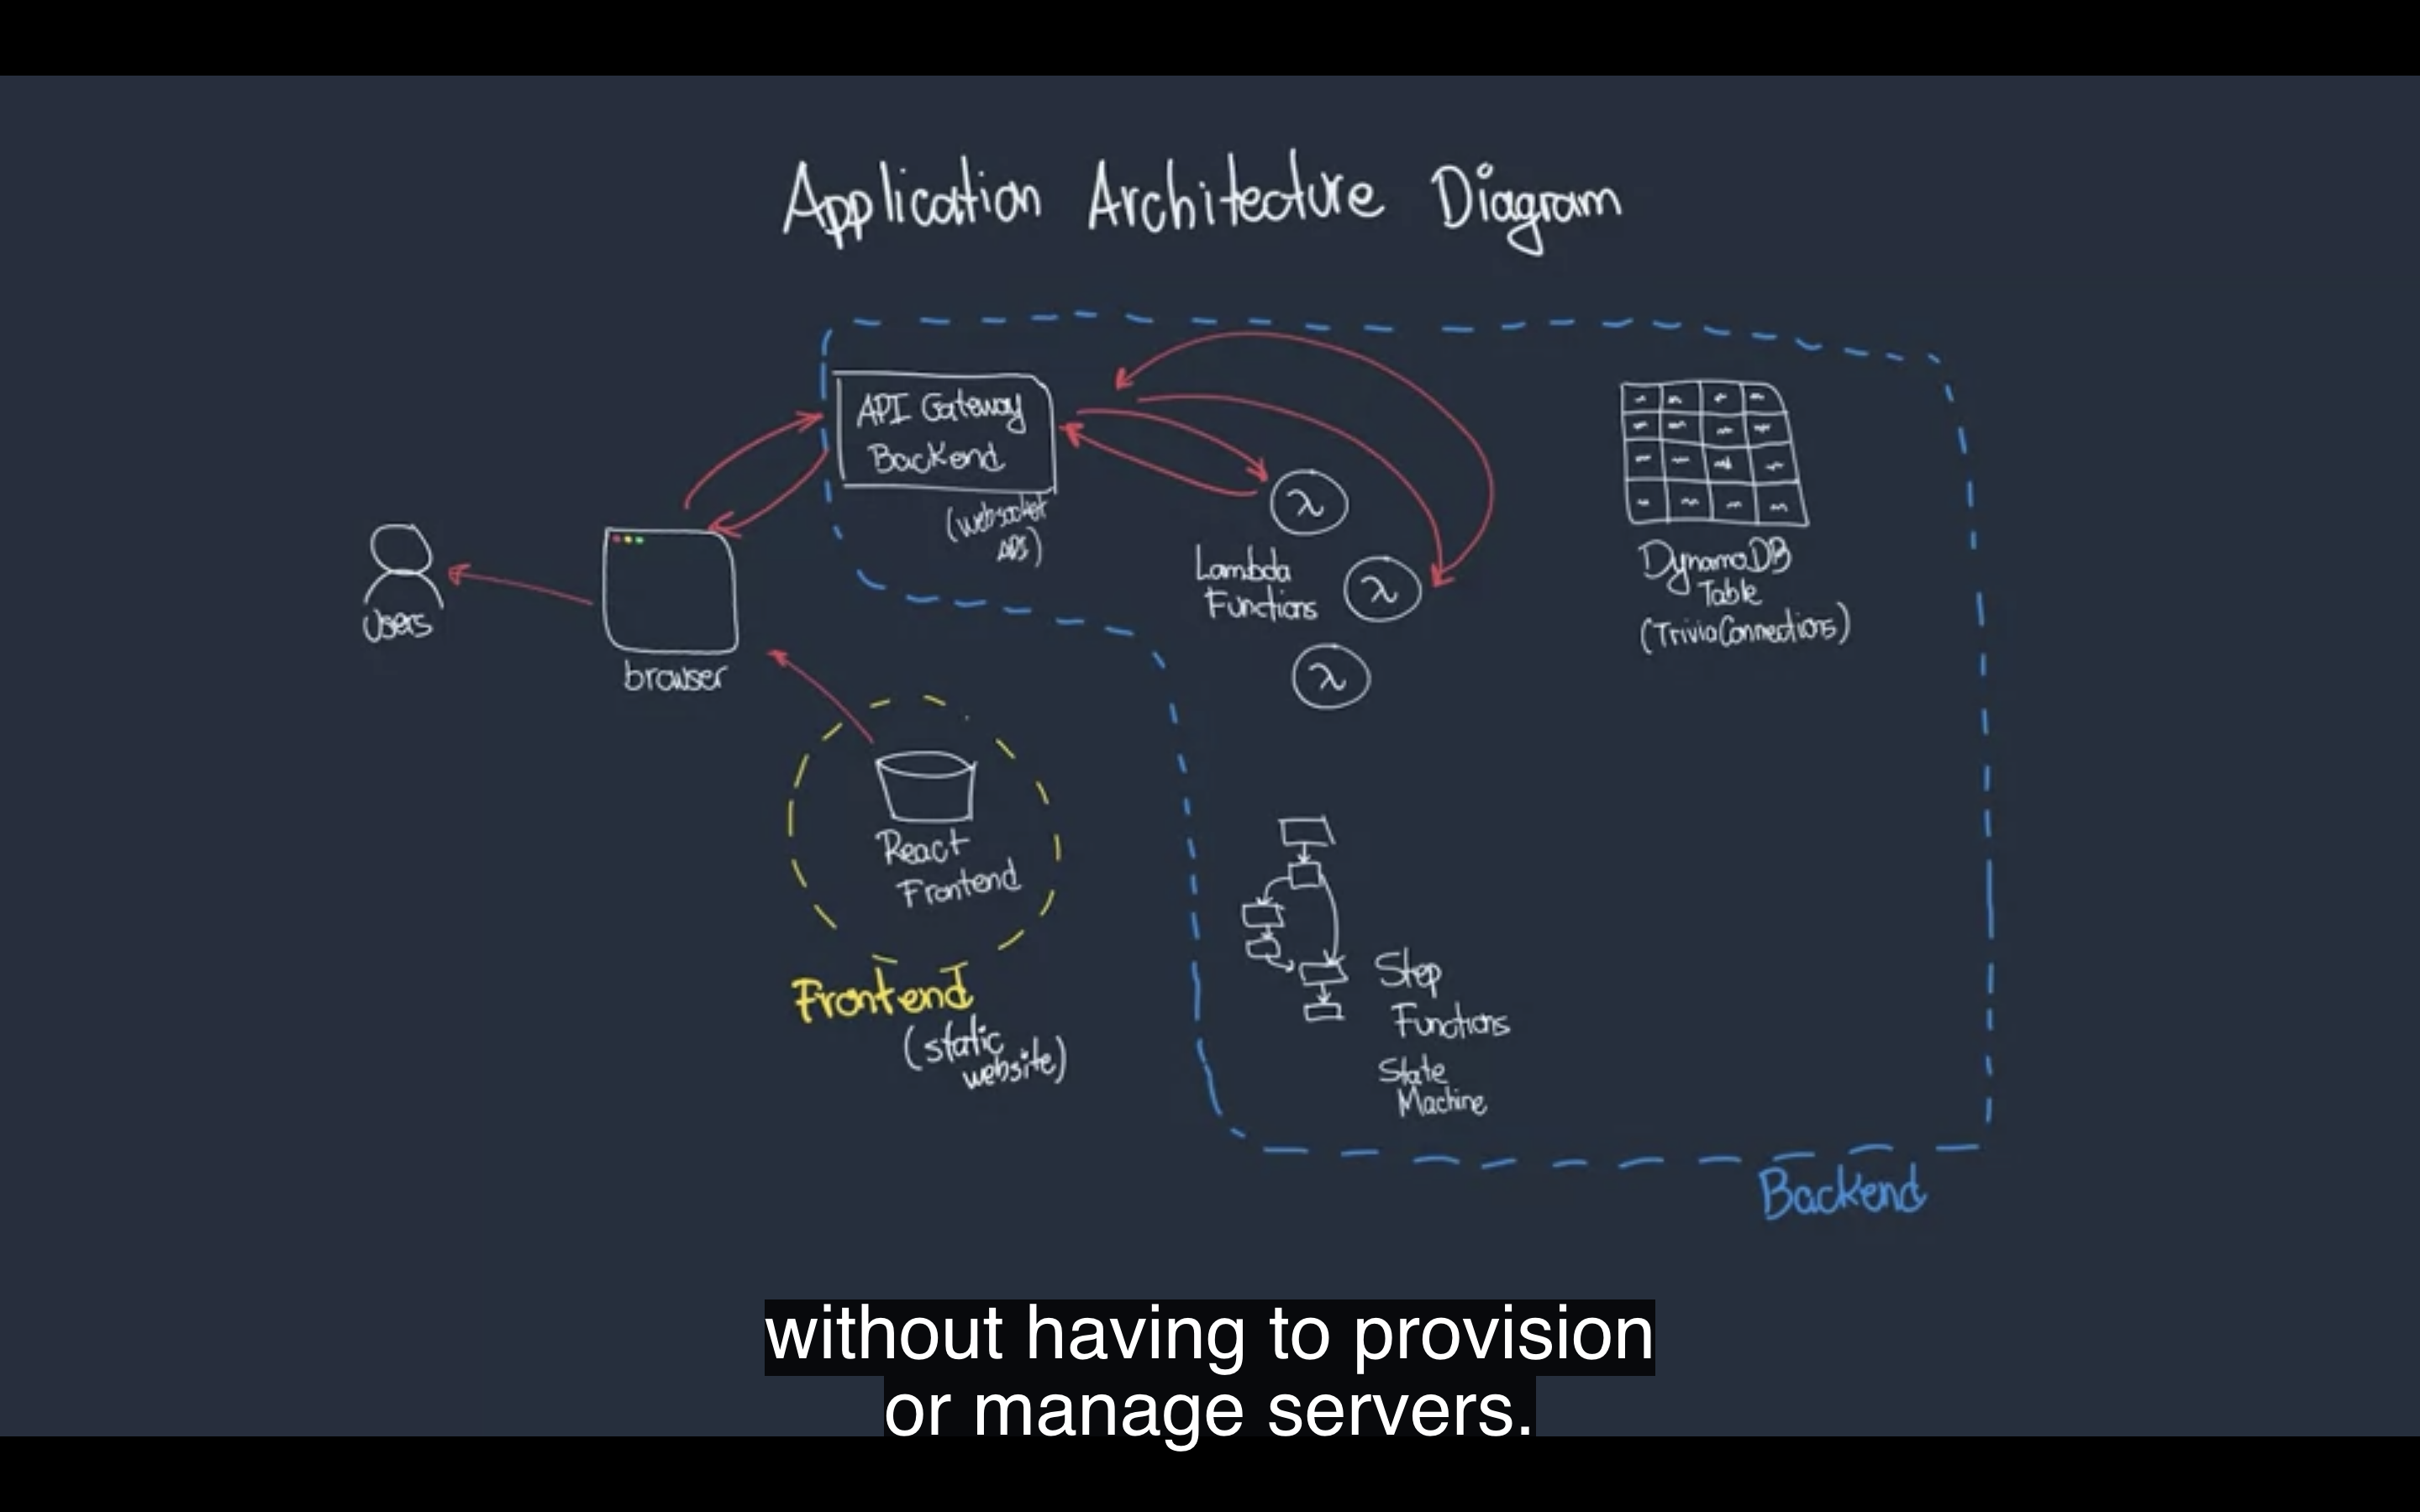 Application Architecture Diagram
API Gateway
Backend
(Websocket
API)
λ
Lambda
Functions
λ
λ
DynamoDB
Table
(TriviaConnections)
Users
browser
React
Frontend
Frontend
(static
website)
Step
Functions
State
Machine
Backend
without having to provision
or manage servers.